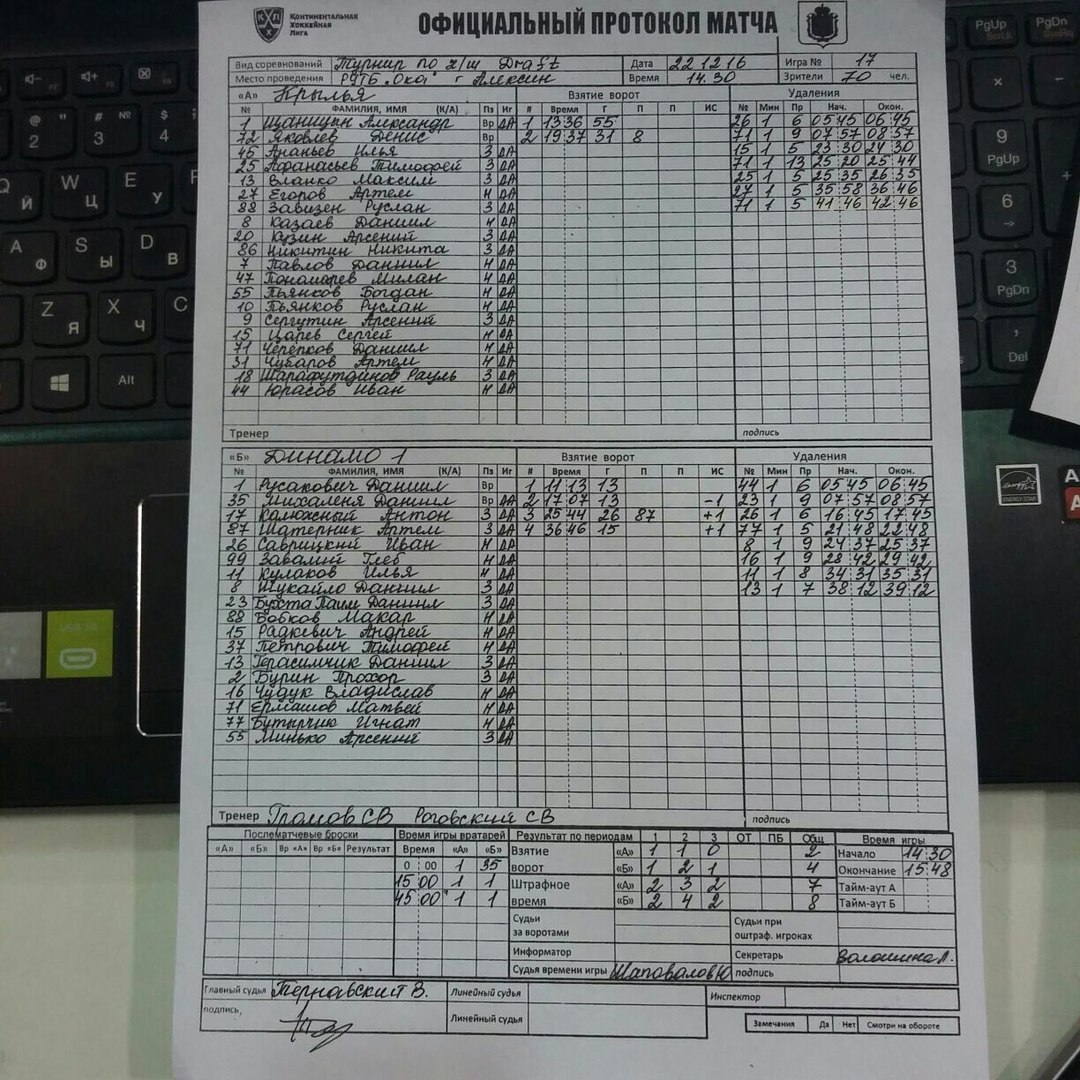 Континентальная
Хоккейная
Лига
ОФИЦИАЛЬНЫЙ ПРОТОКОЛ МАТЧА
Вид соревнований Турнир по х/ш Draft Дата 22 12 16 Игра № 17
Место проведения РУТБ "Ока" г Алексин Время 14.30 Зрители 70 чел.
«А» Крылья Взятие ворот Удаления
№ ФАМИЛИЯ, ИМЯ (К/А) Пз Иг # Время Г П П ИС № Мин Пр Нач. Окон.
1 Щаницын Александр Вр ДА 1 13 36 55 26 1 6 05 45 06 45
72 Яковлев Денис Вр 2 19 37 31 8 71 1 9 07 57 08 57
45 Ананьев Илья З ДА 15 1 5 23 30 24 30
25 Афанасьев Тимофей З ДА 71 1 13 25 20 25 44
13 Владко Максим З ДА 25 1 5 25 35 26 35
27 Егоров Артем Н ДА 27 1 5 35 58 36 46
88 Завизен Руслан З ДА 71 1 5 41 46 42 46
8 Казаев Даниил Н ДА
20 Кузин Арсений З ДА
86 Никитин Никита З ДА
7 Павлов Даниил Н ДА
47 Пономарев Милан Н ДА
55 Пьянков Богдан Н ДА
10 Пьянков Руслан Н ДА
9 Сергутин Арсений З ДА
15 Царев Сергей Н ДА
71 Черепков Даниил Н ДА
31 Чубаров Артем Н ДА
18 Шарафутдинов Рауль З ДА
44 Юрасов Иван Н ДА
Тренер подпись
«Б» Динамо 1 Взятие ворот Удаления
№ ФАМИЛИЯ, ИМЯ (К/А) Пз Иг # Время Г П П ИС № Мин Пр Нач. Окон.
1 Русакович Даниил Вр 1 11 13 13 44 1 6 05 45 06 45
35 Михаленя Даниил Вр ДА 2 17 07 13 -1 23 1 9 07 57 08 57
17 Калюжный Антон З ДА 3 25 44 26 87 +1 26 1 6 16 45 17 45
87 Шатерник Артем З ДА 4 36 46 15 +1 77 1 5 21 48 22 48
26 Саврицкий Иван Н ДА 8 1 9 24 37 25 37
99 Завалий Глеб Н ДА 16 1 9 28 42 29 42
11 Кулаков Илья Н ДА 11 1 8 34 31 35 31
8 Шукайло Даниил З ДА 13 1 7 38 12 39 12
23 Бухта Паим Даниил З ДА
88 Бобков Макар Н ДА
15 Радкевич Андрей Н ДА
37 Петрович Тимофей Н ДА
13 Герасимчик Даниил З ДА
2 Бурин Прохор З ДА
16 Чудук Владислав Н ДА
71 Ермашов Матвей Н ДА
77 Бутырчик Игнат Н ДА
55 Минько Арсений З ДА
Тренер Громов СВ Роговский СВ подпись
Послематчевые броски Время игры вратарей Результат по периодам 1 2 3 ОТ ПБ Общ Время игры
«А» «Б» Вр «А» Вр «Б» Результат Время «А» «Б» Взятие «А» 1 1 0 2 Начало 14 30
0 00 1 35 ворот «Б» 1 2 1 4 Окончание 15 48
15 00 1 1 Штрафное «А» 2 3 2 7 Тайм-аут А
45 00 1 1 время «Б» 2 4 2 8 Тайм-аут Б
Судьи за воротами Судьи при оштраф. игроках
Информатор Секретарь Волошина Л.
Судья времени игры Шаповалов Ю подпись
Главный судья Тернавский В. Линейный судья Инспектор
подпись, Линейный судья Замечания Да Нет Смотри на обороте